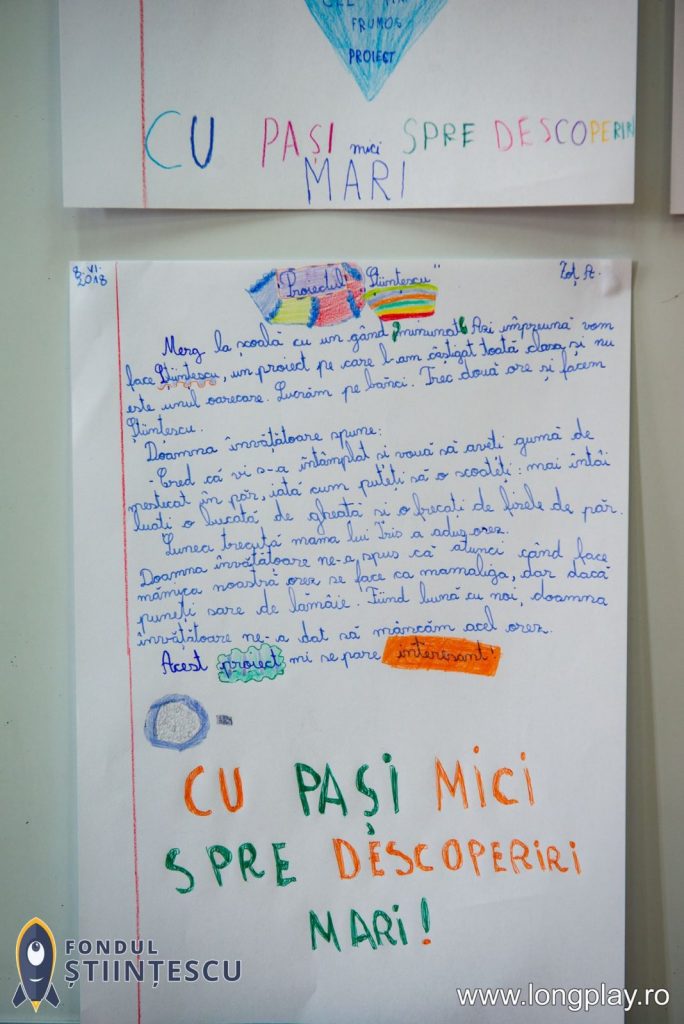 FRUMOS
PROIECT
CU PAȘI mici SPRE DESCOPERIRI
MARI
8. VI.
2018
Proiectul „Științescu”
Merg la școală cu un gând minunat! Azi împreună vom
face Științescu, un proiect pe care l-am câștigat toată clasa și nu
este unul oarecare. Lucrăm pe bănci. Trec două ore și facem
Științescu.
Doamna învățătoare spune:
-Cred că vi s-a întâmplat si vouă să aveti gumă de
mestecat în păr, iată cum puteți să o scoateți: mai întâi
luati o bucată de gheată si o frecați de firele de păr.
Lunea trecută mama lui Iris a adus orez.
Doamna învățătoare ne-a spus că atunci când face
mămica noastră orez se face ca mamaliga, dar dacă
puneți sare de lămâie. Fiind bună cu noi, doamna
învățătoare ne-a dat să mâncăm acel orez.
Acest proiect mi se pare interesant!
CU PAȘI MICI
SPRE DESCOPERIRI
MARI!
FONDUL
ȘTIINȚESCU
www.longplay.ro